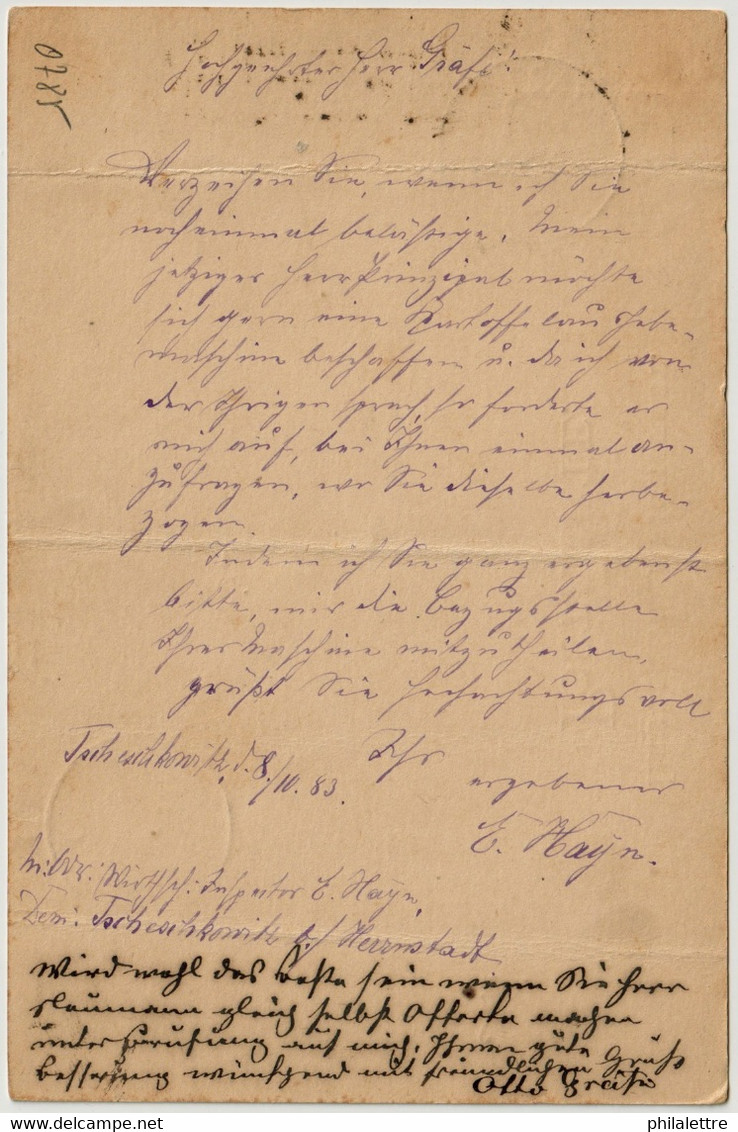 0785
Hochgeehrter Herr Gräfe!
Verzeihen Sie, wenn ich Sie
noch einmal belästige. Mein
jetziger Herr Prinzipal möchte
sich gern eine Kartoffelaushebe-
maschine beschaffen u. da ich von
der Ihrigen sprach, so forderte er
mich auf, bei Ihnen einmal an-
zufragen, wo Sie dieselbe herbe-
zogen.
Indem ich Sie ganz ergebenst
bitte, mir die Bezugsstelle
Ihrer Maschine mitzutheilen,
grüßt Sie hochachtungsvoll
Ihr
Tscheschkowitz, d. 8./10. 83.
ergebener
E. Hayn.
Wirthsch: Inspector E. Hayn,
Dom. Tscheschkowitz b/ Herrnstadt
Wird wohl das beste sein wenn Sie Herr
gleich selbst Offerte machen
unter Berufung auf mich. Ihnen gute
Besserung wünschend mit freundlichen Gruß
Otto Gräfe
philalettre